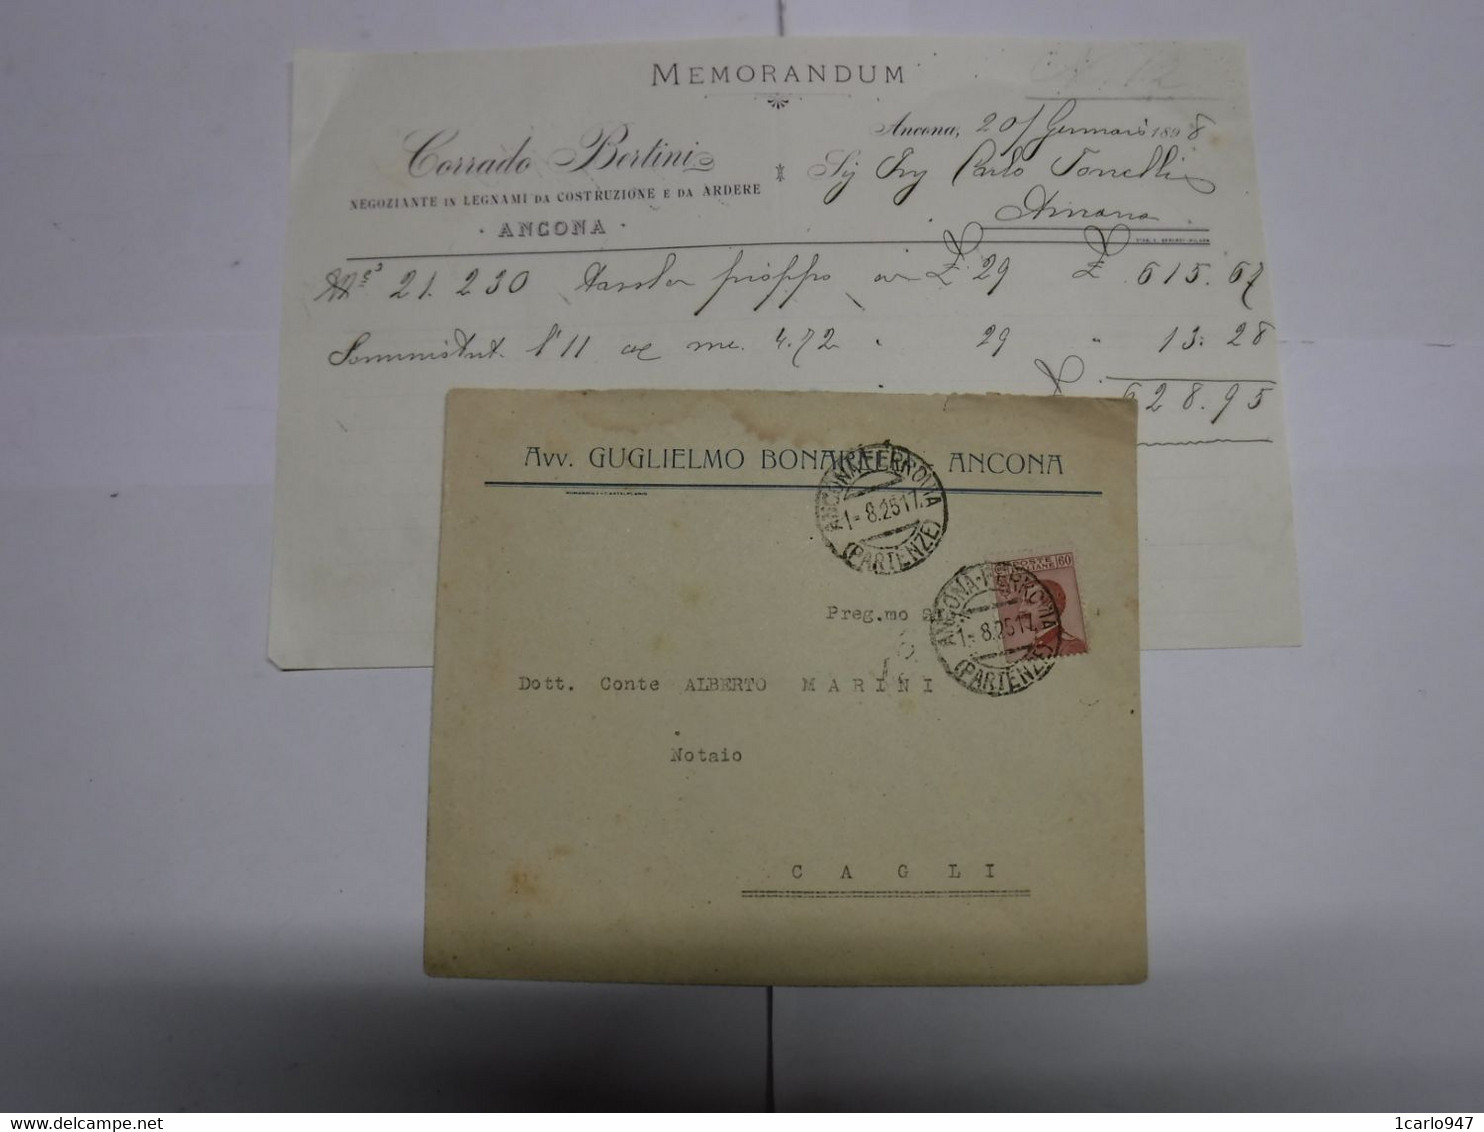 MEMORANDUM
N. 12
Ancona, 20/ Gennaio 1898
Corrado Bertini
NEGOZIANTE IN LEGNAMI DA COSTRUZIONE E DA ARDERE
· ANCONA ·
Carlo Tonelli
Ancona
21.230 pioppo £ 29 £ 615.67
Somministrat. N° 11 mc. 4.72 " 29 " 13.28
628.95
AVV. GUGLIELMO ANCONA
ANCONA-FERROVIA
1-8.25 17.
(PARTENZE)
POSTE ITALIANE 60
ANCONA-FERROVIA
1-8.25 17.
(PARTENZE)
Preg.mo
Dott. Conte ALBERTO MARINI
Notaio
CAGLI
www.delcampe.net
1carlo947